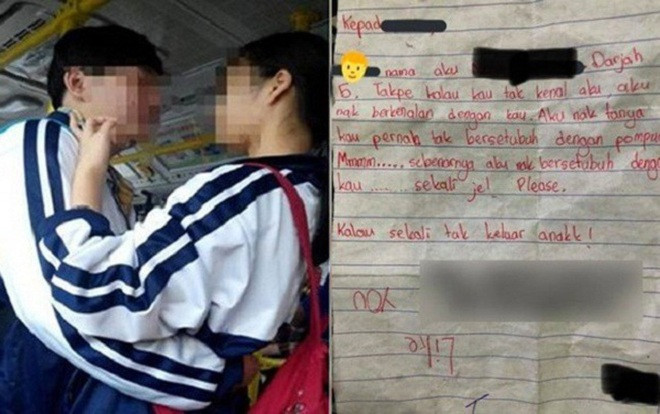 Kepad
nama aku Darjah
5. Takpe kalau kau tak kenal aku aku
nak berkenalan dengan kau. Aku nak tanya
kau pernah tak bersetubuh dengan pompu
Mmmm..... sebenarnya aku nak bersetubuh deng
kau ..... sekali je! Please.
Kalau sekali tak keluar anakk!